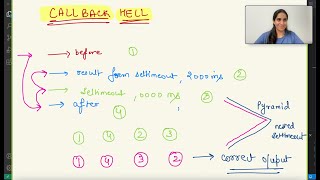 CALLBACK HELL
→ before ①
→ result from settimeout, 2000ms ②
→ settimeout, 0000 ms ③
→ after ④
Pyramid
nested settimeout
① ④ ② ③
① ④ ③ ② → correct o/put